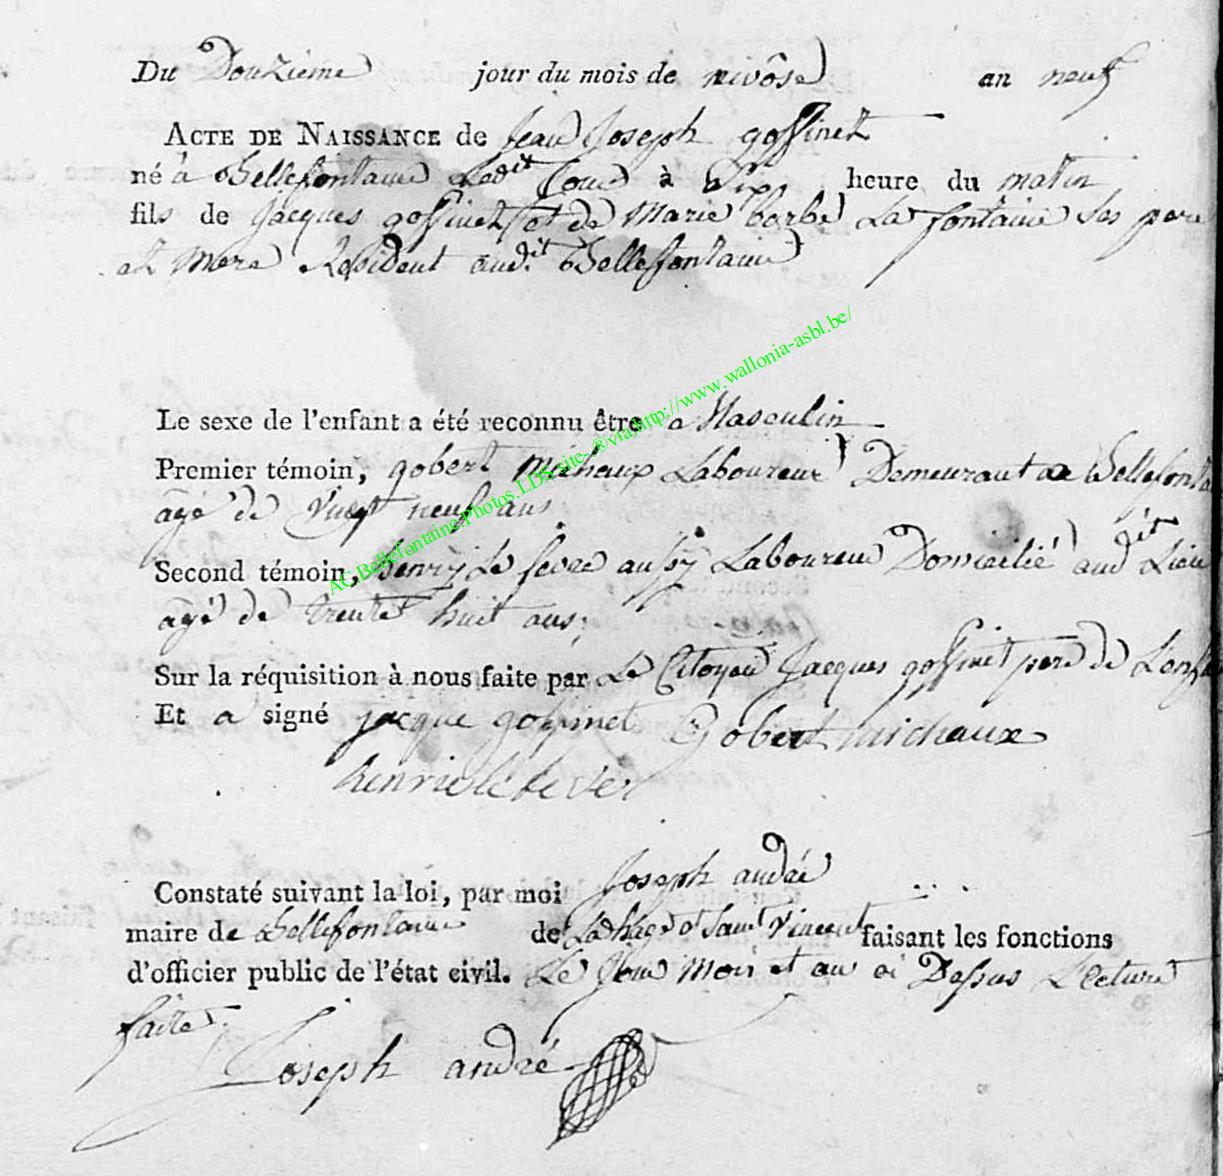 Du Douzieme jour du mois de nivôse an neuf
ACTE DE NAISSANCE de Jean Joseph goffinet
né à Bellefontaine Ledit Jour à Six heure du matin
fils de Jacques goffinet et de Marie barbe La fontaine Ses pere
et Mere Résident audit Bellefontaine
Le sexe de l'enfant a été reconnu être Masculin
Premier témoin, gobert michaux Laboureur Demeurant a Bellefonta
agé de Vingt neuf ans
Second témoin, henry Le fevre aussy Laboureur Domicilié audit Lieu
agé de trente huit ans;
Sur la réquisition à nous faite par Le Citoyen Jacques goffinet pere de L'enfa
Et a signé jacque goffinet Gobert michaux
henri le fever
Constaté suivant la loi, par moi Joseph andré
maire de Bellefontaine de Lahage et Saint Vincent faisant les fonctions
d'officier public de l'état civil. Le Jour Mois et an ci Dessus Lecture
faite.
Joseph andré
AC.Bellefontaine.Photos.LDS.site-®via.http://www.wallonia-asbl.be/